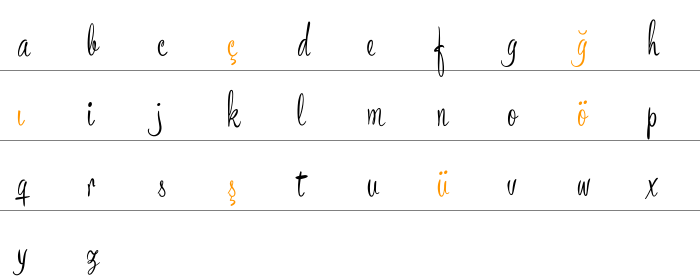 a b c ç d e f g ğ h
ı i j k l m n o ö p
q r s ş t u ü v w x
y z